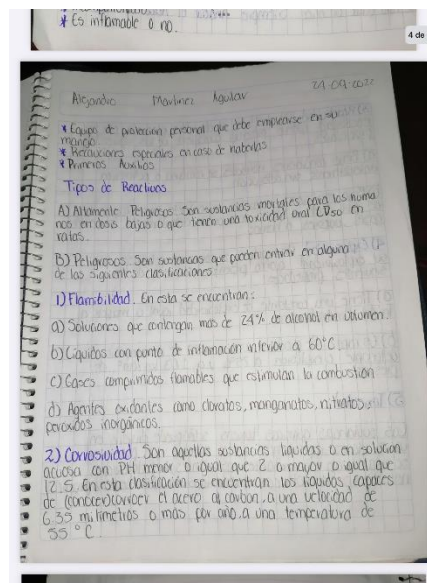 * Es inflamable o no.
4 de
Alejandro Martinez Aguilar 21 09 2022
* Equipo de protección personal que debe emplearse en su
manejo
* Precauciones especiales en caso de haberlas
* Primeros Auxilios
Tipos de Reactivos
A) Altamente Peligrosos. Son sustancias mortales para los huma
nos en dosis bajas o que tienen una toxicidad oral LD50 en
ratas.
B) Peligrosos. Son sustancias que pueden entrar en alguna
de las siguientes clasificaciones
1) Flamabilidad. En esta se encuentran:
a) Soluciones que contengan mas de 24% de alcohol en volumen.
b) Liquidos con punto de inflamación inferior a 60°C
c) Gases comprimidos flamables que estimulan la combustión
d) Agentes oxidantes como cloratos, manganatos, nitratos,
peroxidos inorgánicos.
2) Corrosividad. Son aquellas sustancias liquidas o en solucion
acuosa con PH menor o igual que 2 o mayor o igual que
12.5. En esta clasificación se encuentran los liquidos capaces
de (conocer) corroer el acero al carbon, a una velocidad de
6.35 milimetros o mas por año, a una temperatura de
55 °C